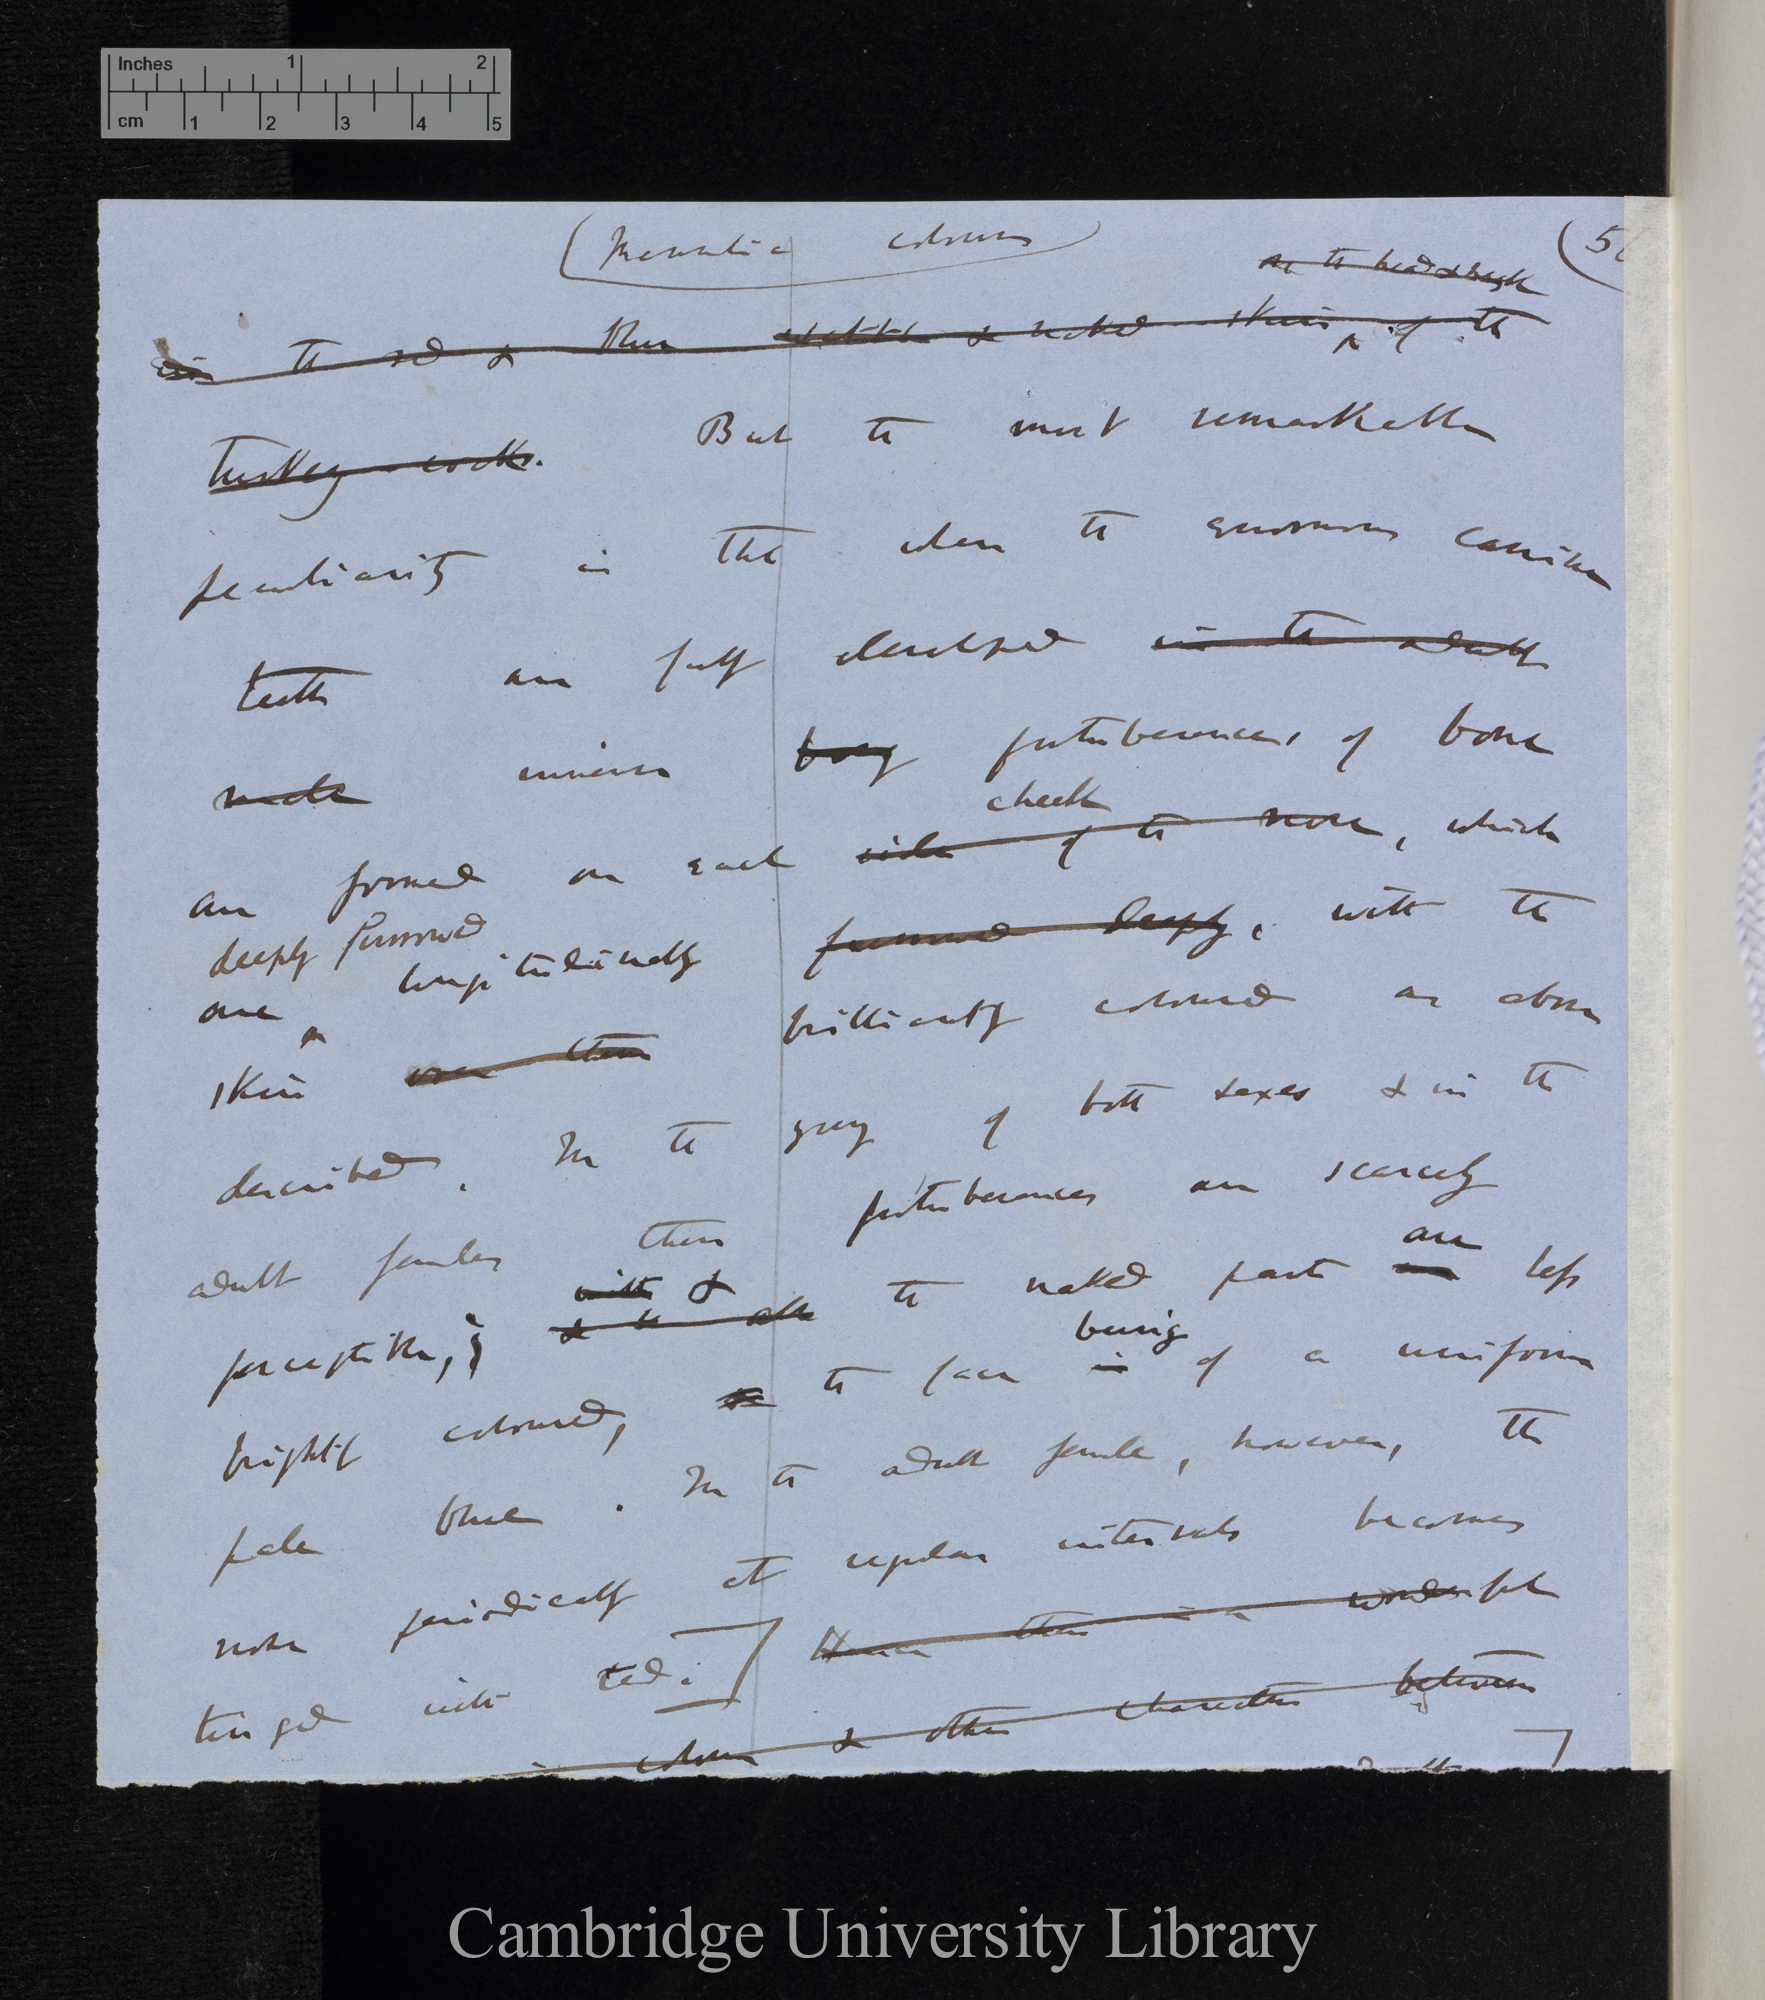 Inches 1 2
cm 1 2 3 4 5
(Mammalia colours) (5
on the head & neck
in the red & blue wattle & naked skin of the
turkey-cocks. But the most remarkable
peculiarity is that when the enormous canine
teeth are fully developed in the adult
male immense bony protuberances of bone
cheek
are formed on each side of the nose, which
deeply furrowed
are longitudinally furrowed deeply, with the
skin over them brilliantly coloured as above
described. In the young of both sexes & in the
adult females these protuberances are scarcely
with & are
perceptible, & the naked parts less
being
brightly coloured, the face is of a uniform
pale blue. In the adult female, however, the
nose periodically at regular intervals becomes
tinged with red.] Hence there is a wonderful
in colour & other characters between
Cambridge University Library